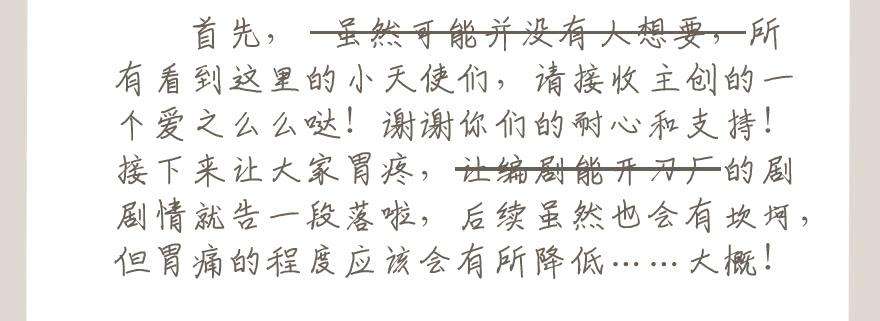 首先，虽然可能并没有人想要，所
有看到这里的小天使们，请接收主创的一
个爱之么么哒！谢谢你们的耐心和支持！
接下来让大家胃疼，让编剧能开刀厂的剧
剧情就告一段落啦，后续虽然也会有坎坷，
但胃痛的程度应该会有所降低……大概！